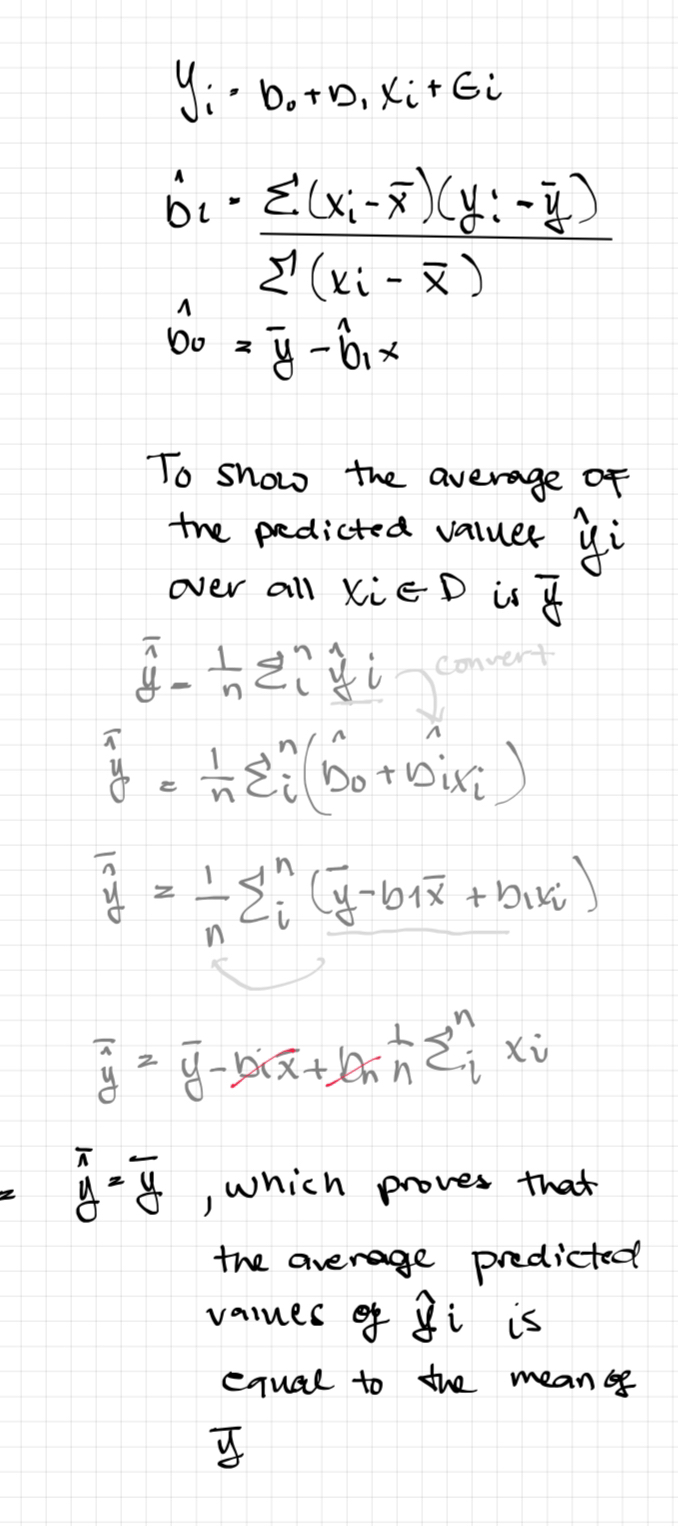 yi = b0 + b1 xi + ϵi
b̂1 = Σ(xi - x̄)(yi - ȳ)
Σ(xi - x̄)
b̂0 = ȳ - b̂1x
To show the average of
the predicted values ŷi
over all xi ∈ D is ȳ
ŷ̄ = 1/n Σi^n ŷi convert
ŷ̄ = 1/n Σi^n (b̂0 + b̂1xi)
ŷ̄ = 1/n Σi^n (ȳ - b1x̄ + b1xi)
ŷ̄ = ȳ - b1x̄ + b1 1/n Σi^n xi
= ŷ̄ = ȳ, which proves that
the average predicted
values of ŷi is
equal to the mean of
ȳ